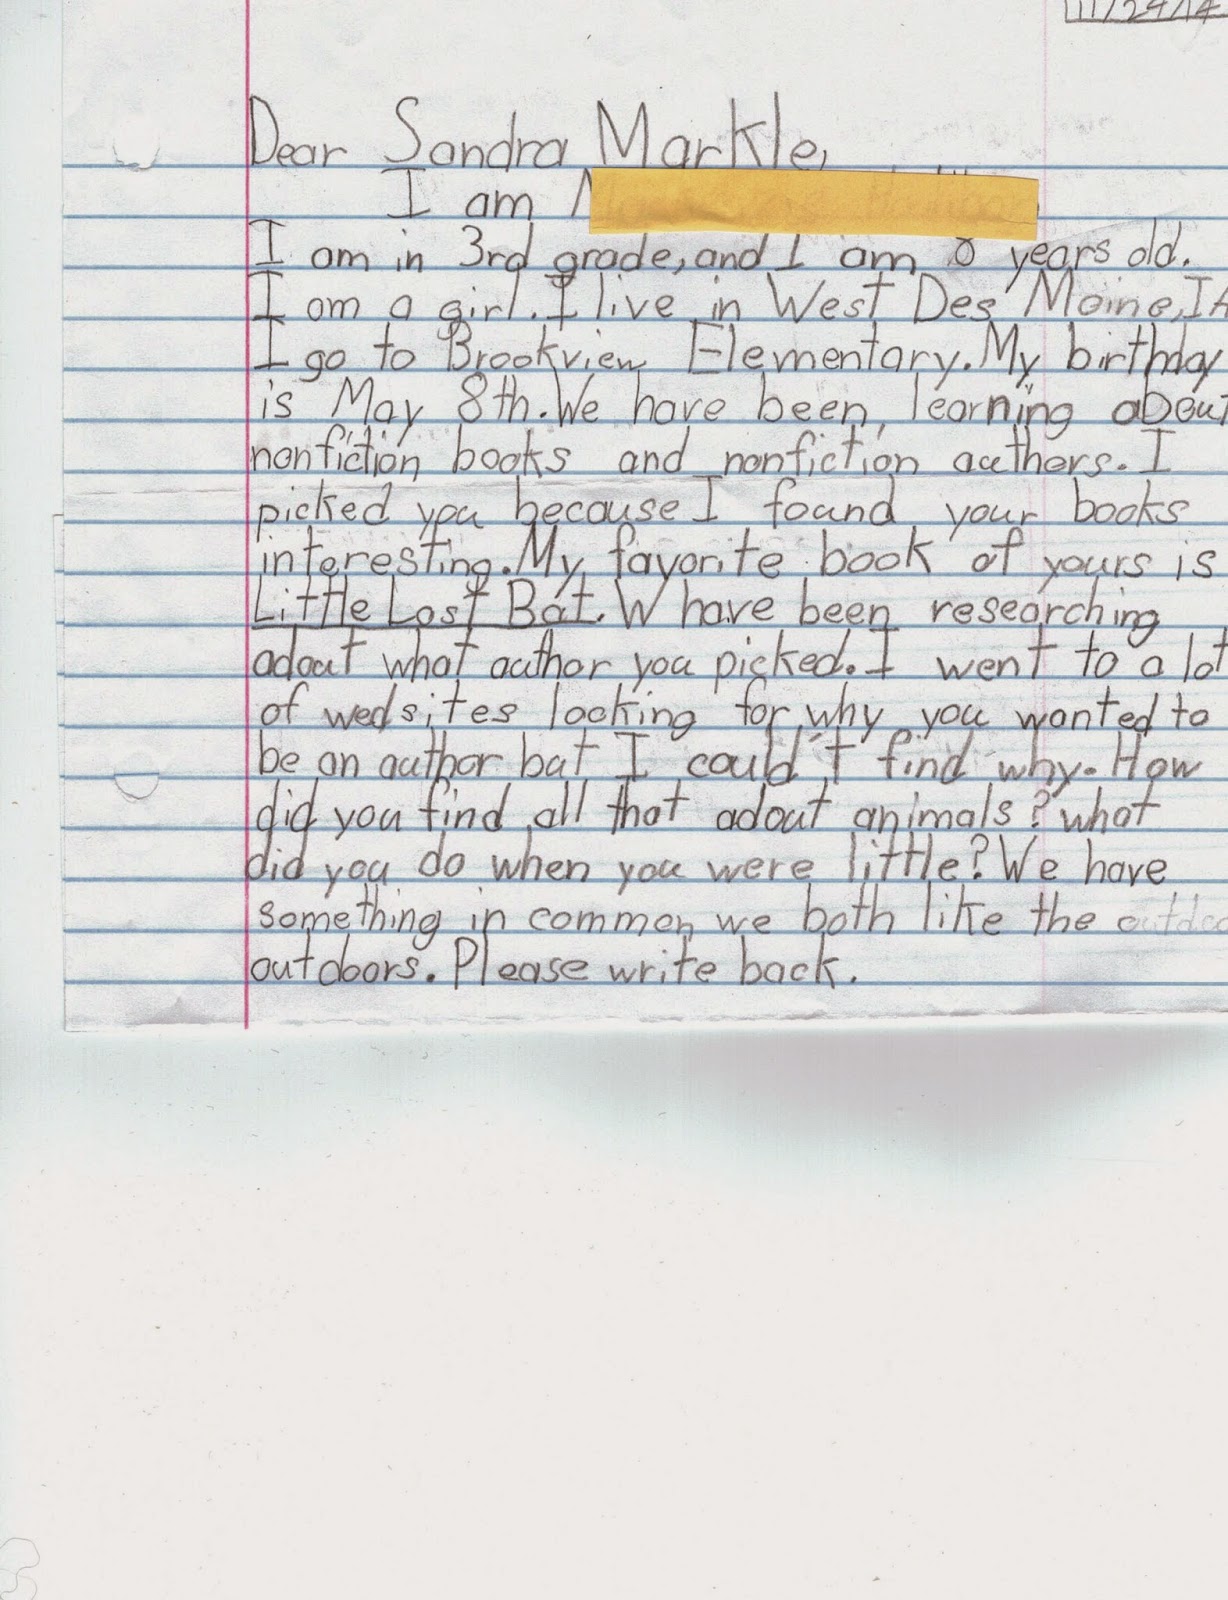 11/24/14
Dear Sandra Markle,
I am
I am in 3rd grade, and I am 8 years old.
I am a girl. I live in West Des Moine, IA
I go to Brookview Elementary. My birthday
is May 8th. We have been learning about
nonfiction books and nonfiction authers. I
picked you because I found your books
interesting. My favorite book of yours is
Little Lost Bat. W have been researching
adout what author you picked. I went to a lot
of wedsites looking for why you wanted to
be an author bat I could't find why. How
did you find all that adout animals? what
did you do when you were little? We have
something in common we both like the
outdoors. Please write back.